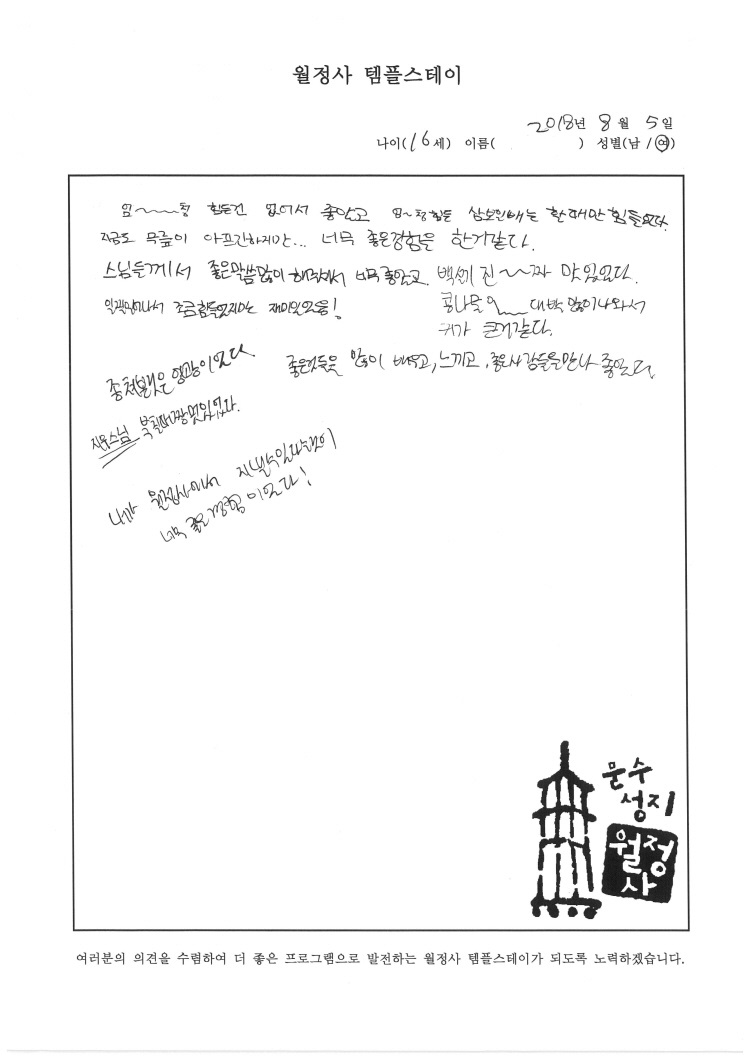 월정사 템플스테이
2018년 8월 5일
나이(16세) 이름( ) 성별(남/여)
엄~~~청 힘든건 없어서 좋았고 엄~청힘든 삼보일배는 할때만 힘들었다.
지금도 무릎이 아프긴하지만... 너무 좋은경험을 한거같다.
스님들께서 좋은말씀많이 해주셔서 너무 좋았고. 백설기 진~~짜 맛있었다.
일찍일어나서 조금힘들었지만 재미있었음!
콩나물 대박 많이나와서
키가 큰거같다.
좋은것들을 많이 배우고, 느끼고, 좋은사람들을만나 좋았다.
종쳐본것은 영광이였다
스님 북칠때 짱 멋있었다.
내가 월정사에서 지낸
너무 좋은경험이였다!
문수
성지
월정
사
여러분의 의견을 수렴하여 더 좋은 프로그램으로 발전하는 월정사 템플스테이가 되도록 노력하겠습니다.